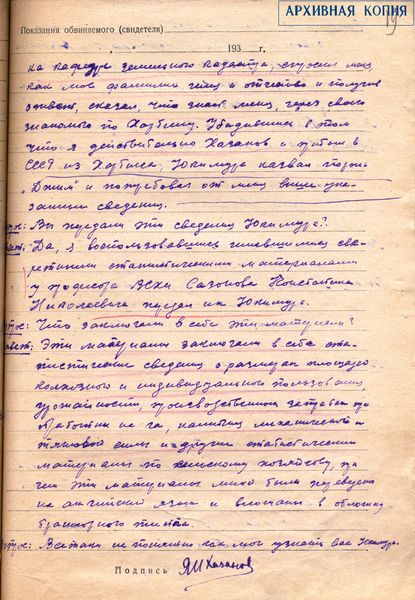 АРХИВНАЯ КОПИЯ
19
Показания обвиняемого (свидетеля)
193 г.
на кафедре земельного кадастра, спросил меня
как моё фамилия имя и отчество и получив
ответ, сказал, что знает меня, через своего
знакомого по Харбину. Убедившись в том
что я действительно Хазанов и прибыл в
СССР из Харбина, назвал пароль
и потребовал от меня выше ука-
занные сведения.
Вы передали эти сведения
Да, я воспользовавшись имевшимися сек-
ретными статистическими материалами
у профессора ВСХИ Сазонова Константина
Николаевича передал их
Что заключали в себе эти материалы?
Эти материалы заключали в себе ста-
тистические сведения о размерах площадей
колхозного и индивидуального пользования,
урожайности, производственных затратах по
обработки на га, наличии механической и
тягловой силы и другие статистические
материалы по сельскому хозяйству, при
чем эти материалы мной были переведены
на английский язык и вложены в обложку
типа.
Всё таки не понятно как мог узнать Вас
Подпись ЯИХазанов